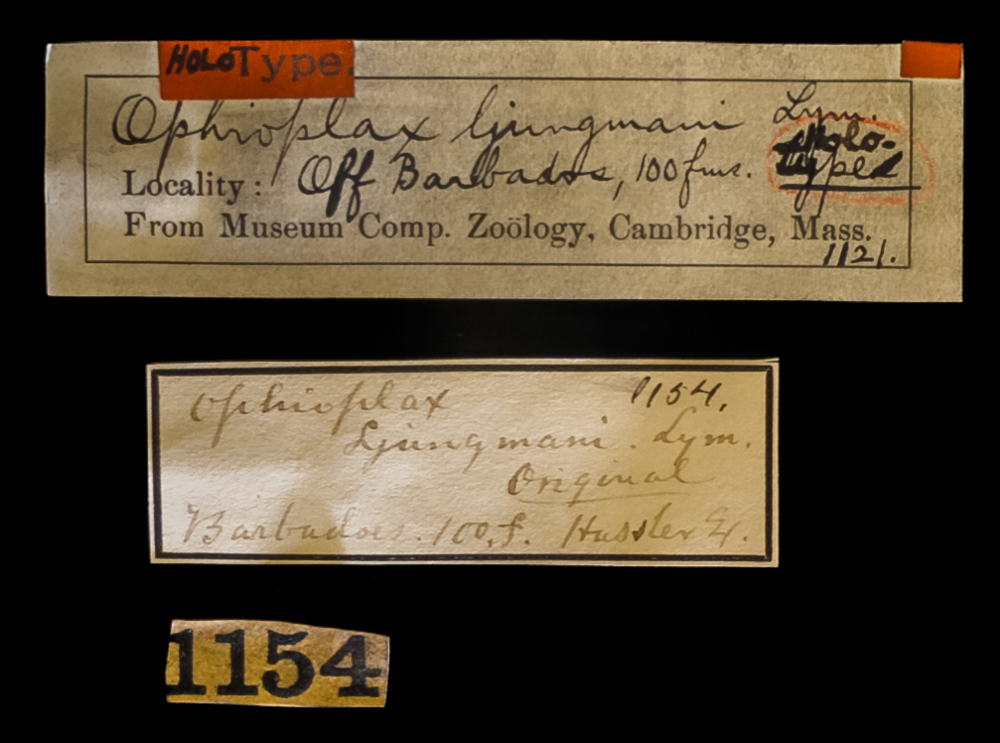 HOLOType.
Ophioplax ljungmani Lym.
Holo-
type
Locality: Off Barbados, 100 fms.
From Museum Comp. Zoölogy, Cambridge, Mass.
1121.
Ophioplax 1154.
Ljungmani. Lym.
Original
Barbadoes. 100. f. Hassler Ex.
1154